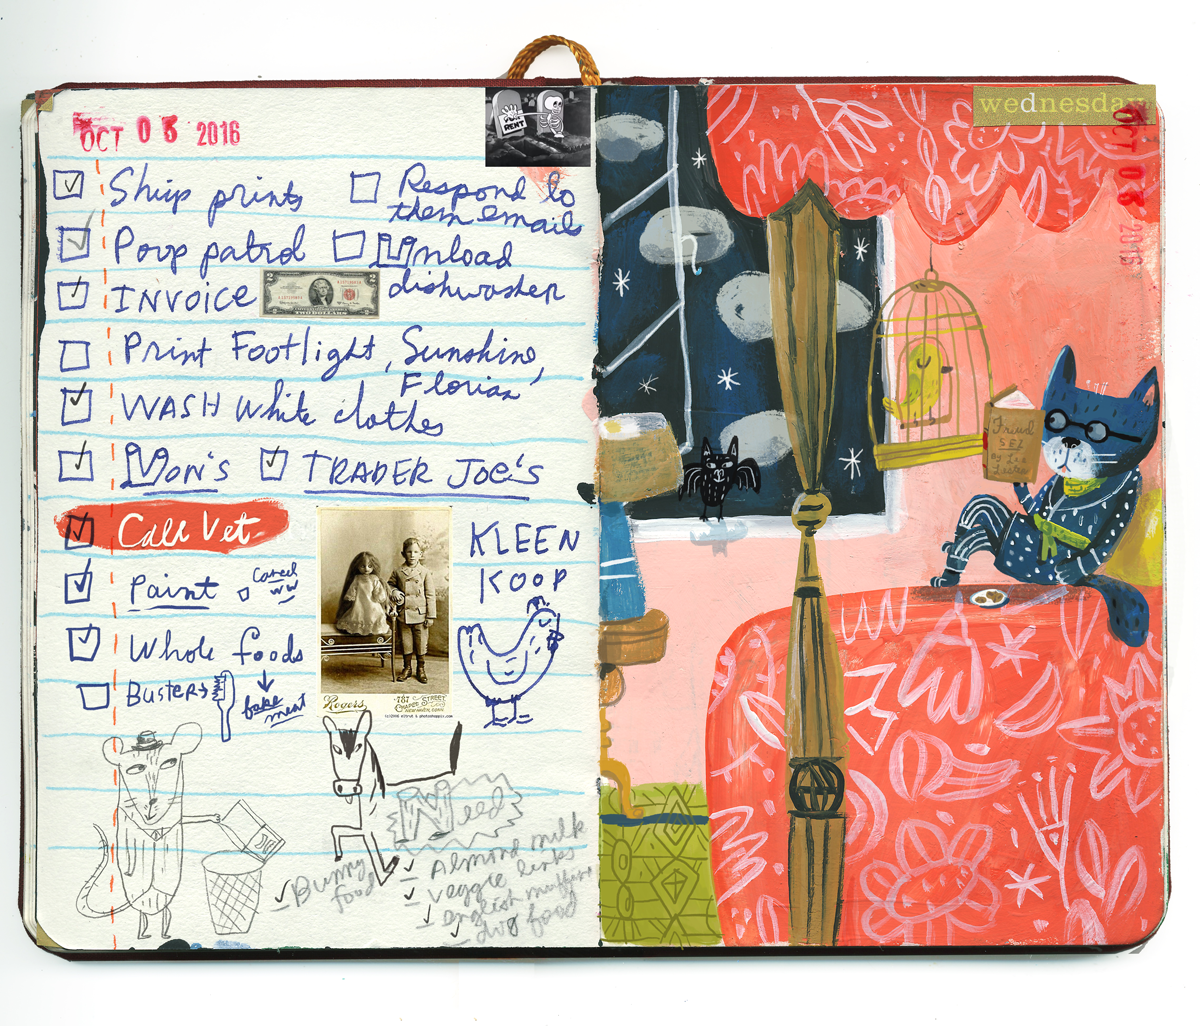 OCT 05 2016
RENT
Ship prints
Respond to
them emails
Poop patrol
Unload
dishwasher
INVOICE
TWO DOLLARS
Print Footlight, Sunshine,
Florian
WASH White clothes
Von's
TRADER JOE'S
Call Vet
KLEEN
KOOP
Paint
Cancel
WW
Whole foods
Busters
fake
meat
Rogers
787
CHAPEL STREET
NEW HAVEN, CONN.
Need
Almond milk
Veggie links
english muffins
dog food
Bunny
food
wednesday
OCT 05 2016
Freud
SEZ